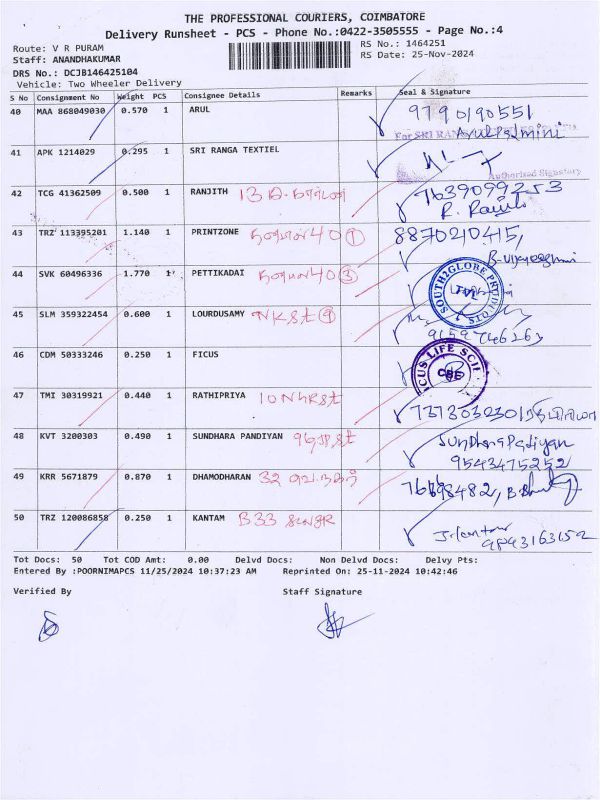 THE PROFESSIONAL COURIERS, COIMBATORE
Delivery Runsheet - PCS - Phone No.:0422-3505555 - Page No.:4
Route: V R PURAM
RS No.: 1464251
Staff: ANANDHAKUMAR
RS Date: 25-Nov-2024
DRS No.: DCJB146425104
Vehicle: Two Wheeler Delivery
S No Consignment No Weight PCS Consignee Details Remarks Seal & Signature
40 MAA 868049030 0.570 1 ARUL 9790190551
41 APK 1214029 0.295 1 SRI RANGA TEXTIEL
Authorised Signatory
42 TCG 41362509 0.500 1 RANJITH 7639099253
43 TRZ 113395201 1.140 1 PRINTZONE 40 1 8870210415,
44 SVK 60496336 1.770 1 PETTIKADAI 40 3 SOUTH2GLOBE
45 SLM 359322454 0.600 1 LOURDUSAMY NK St 9
46 CDM 50333246 0.250 1 FICUS CUS LIFE SCI CBE
47 TMI 30319921 0.440 1 RATHIPRIYA
48 KVT 3200303 0.490 1 SUNDHARA PANDIYAN Sundhara Padiyan
9543475252
49 KRR 5671879 0.870 1 DHAMODHARAN 32
50 TRZ 120086858 0.250 1 KANTAM B33
Tot Docs: 50 Tot COD Amt: 0.00 Delvd Docs: Non Delvd Docs: Delvy Pts:
Entered By :POORNIMAPCS 11/25/2024 10:37:23 AM Reprinted On: 25-11-2024 10:42:46
Verified By Staff Signature